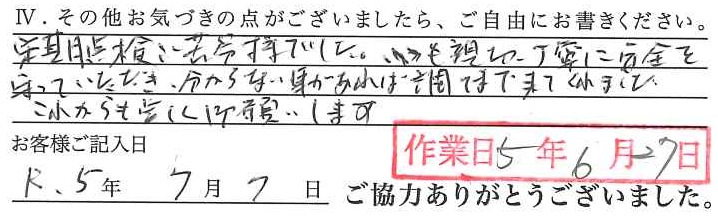 Ⅳ．その他お気づきの点がございましたら、ご自由にお書きください。
定期点検ご苦労様でした。いつも親切、丁寧に安全を
守っていただき、分からない事があれば
まで来てくれました
これからも宜しくお願いします
お客様ご記入日
作業日5年6月27日
R.5年 7月7日 ご協力ありがとうございました。